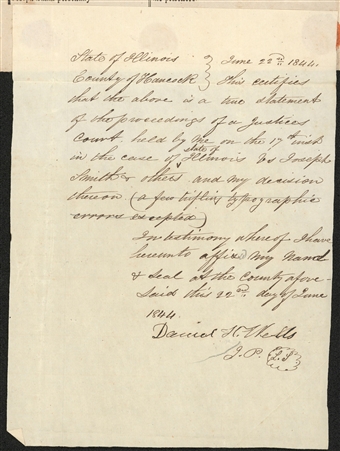 State of Illinois } June 22nd. 1844.
County of Hancock } This certifies
that the above is a true statement
of the proceedings of a Justices
Court held by me on the 17th inst
in the case of state of Illinois vs Joseph
Smith & others and my decision
thereon (a few trifling typographic
errors excepted)
In testimony whereof I have
hereunto affixed my hand
& seal at the County afore-
said this 22nd day of June
1844.
Daniel H. Wells
J. P. L.S